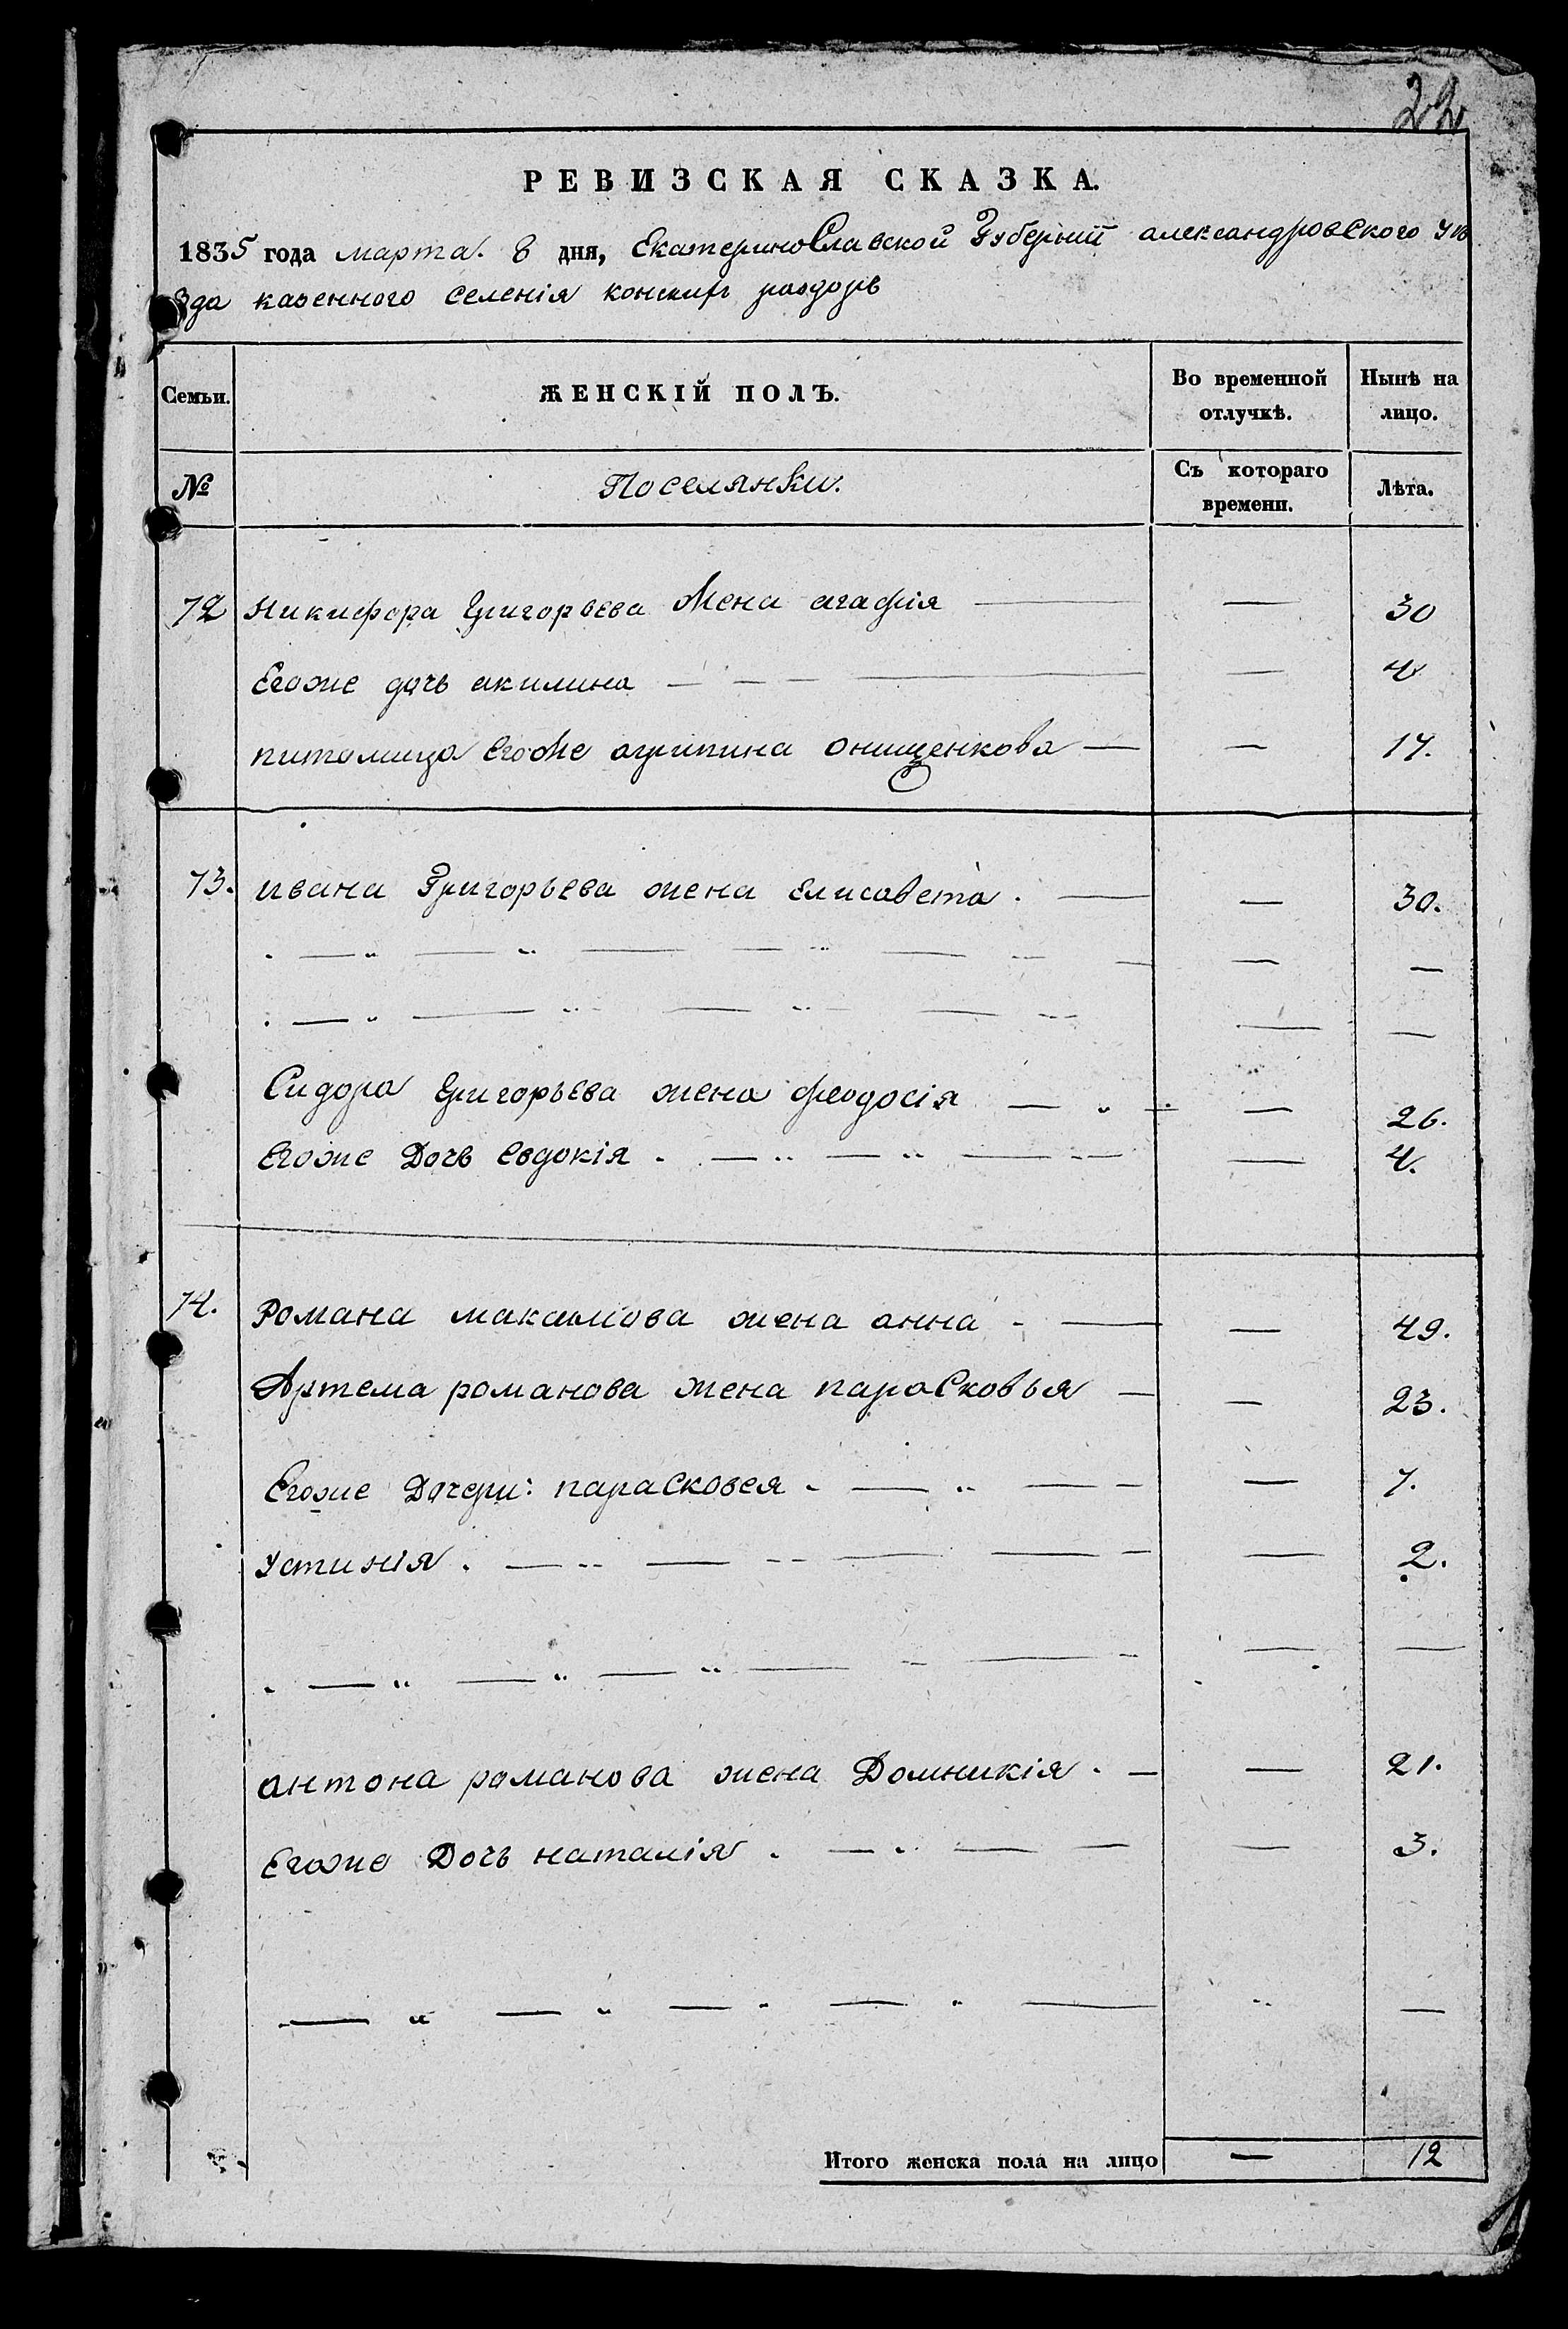 22
РЕВИЗСКАЯ СКАЗКА.
1835 года марта. 8 дня, Екатеринославской Губернии александровского уѣ
зда казенного селенія конскихъ раздоръ
Семьи. ЖЕНСКІЙ ПОЛЪ. Во временной отлучкѣ. Нынѣ на лицо.
№ Поселянки. Съ котораго времени. Лѣта.
72 Никифора Григорьева Жена агафія — — 30
Егоже дочь акилина — — — — — 4
питомица Егоже агрипина онищенкова — — 17.
73. ивана Григорьева жена Елисавета. — — 30.
Сидора Григорьева жена феодосія — — 26.
Егоже Дочь Евдокія. — — — — 4.
74. Романа максимова жена анна - — — 49.
Артема романова жена парасковья — — 23.
Егоже Дочери: парасковея. — — — 7.
Устинія. — — — — — 2.
антона романова жена Домникія. — — 21.
Егоже Дочь наталія. — — — — 3.
Итого женска пола на лицо — 12